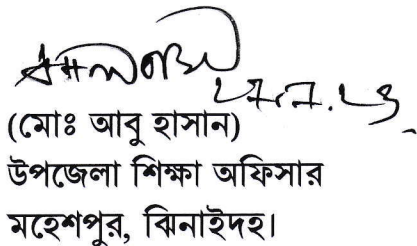 (মোঃ আবু হাসান)
উপজেলা শিক্ষা অফিসার
মহেশপুর, ঝিনাইদহ।